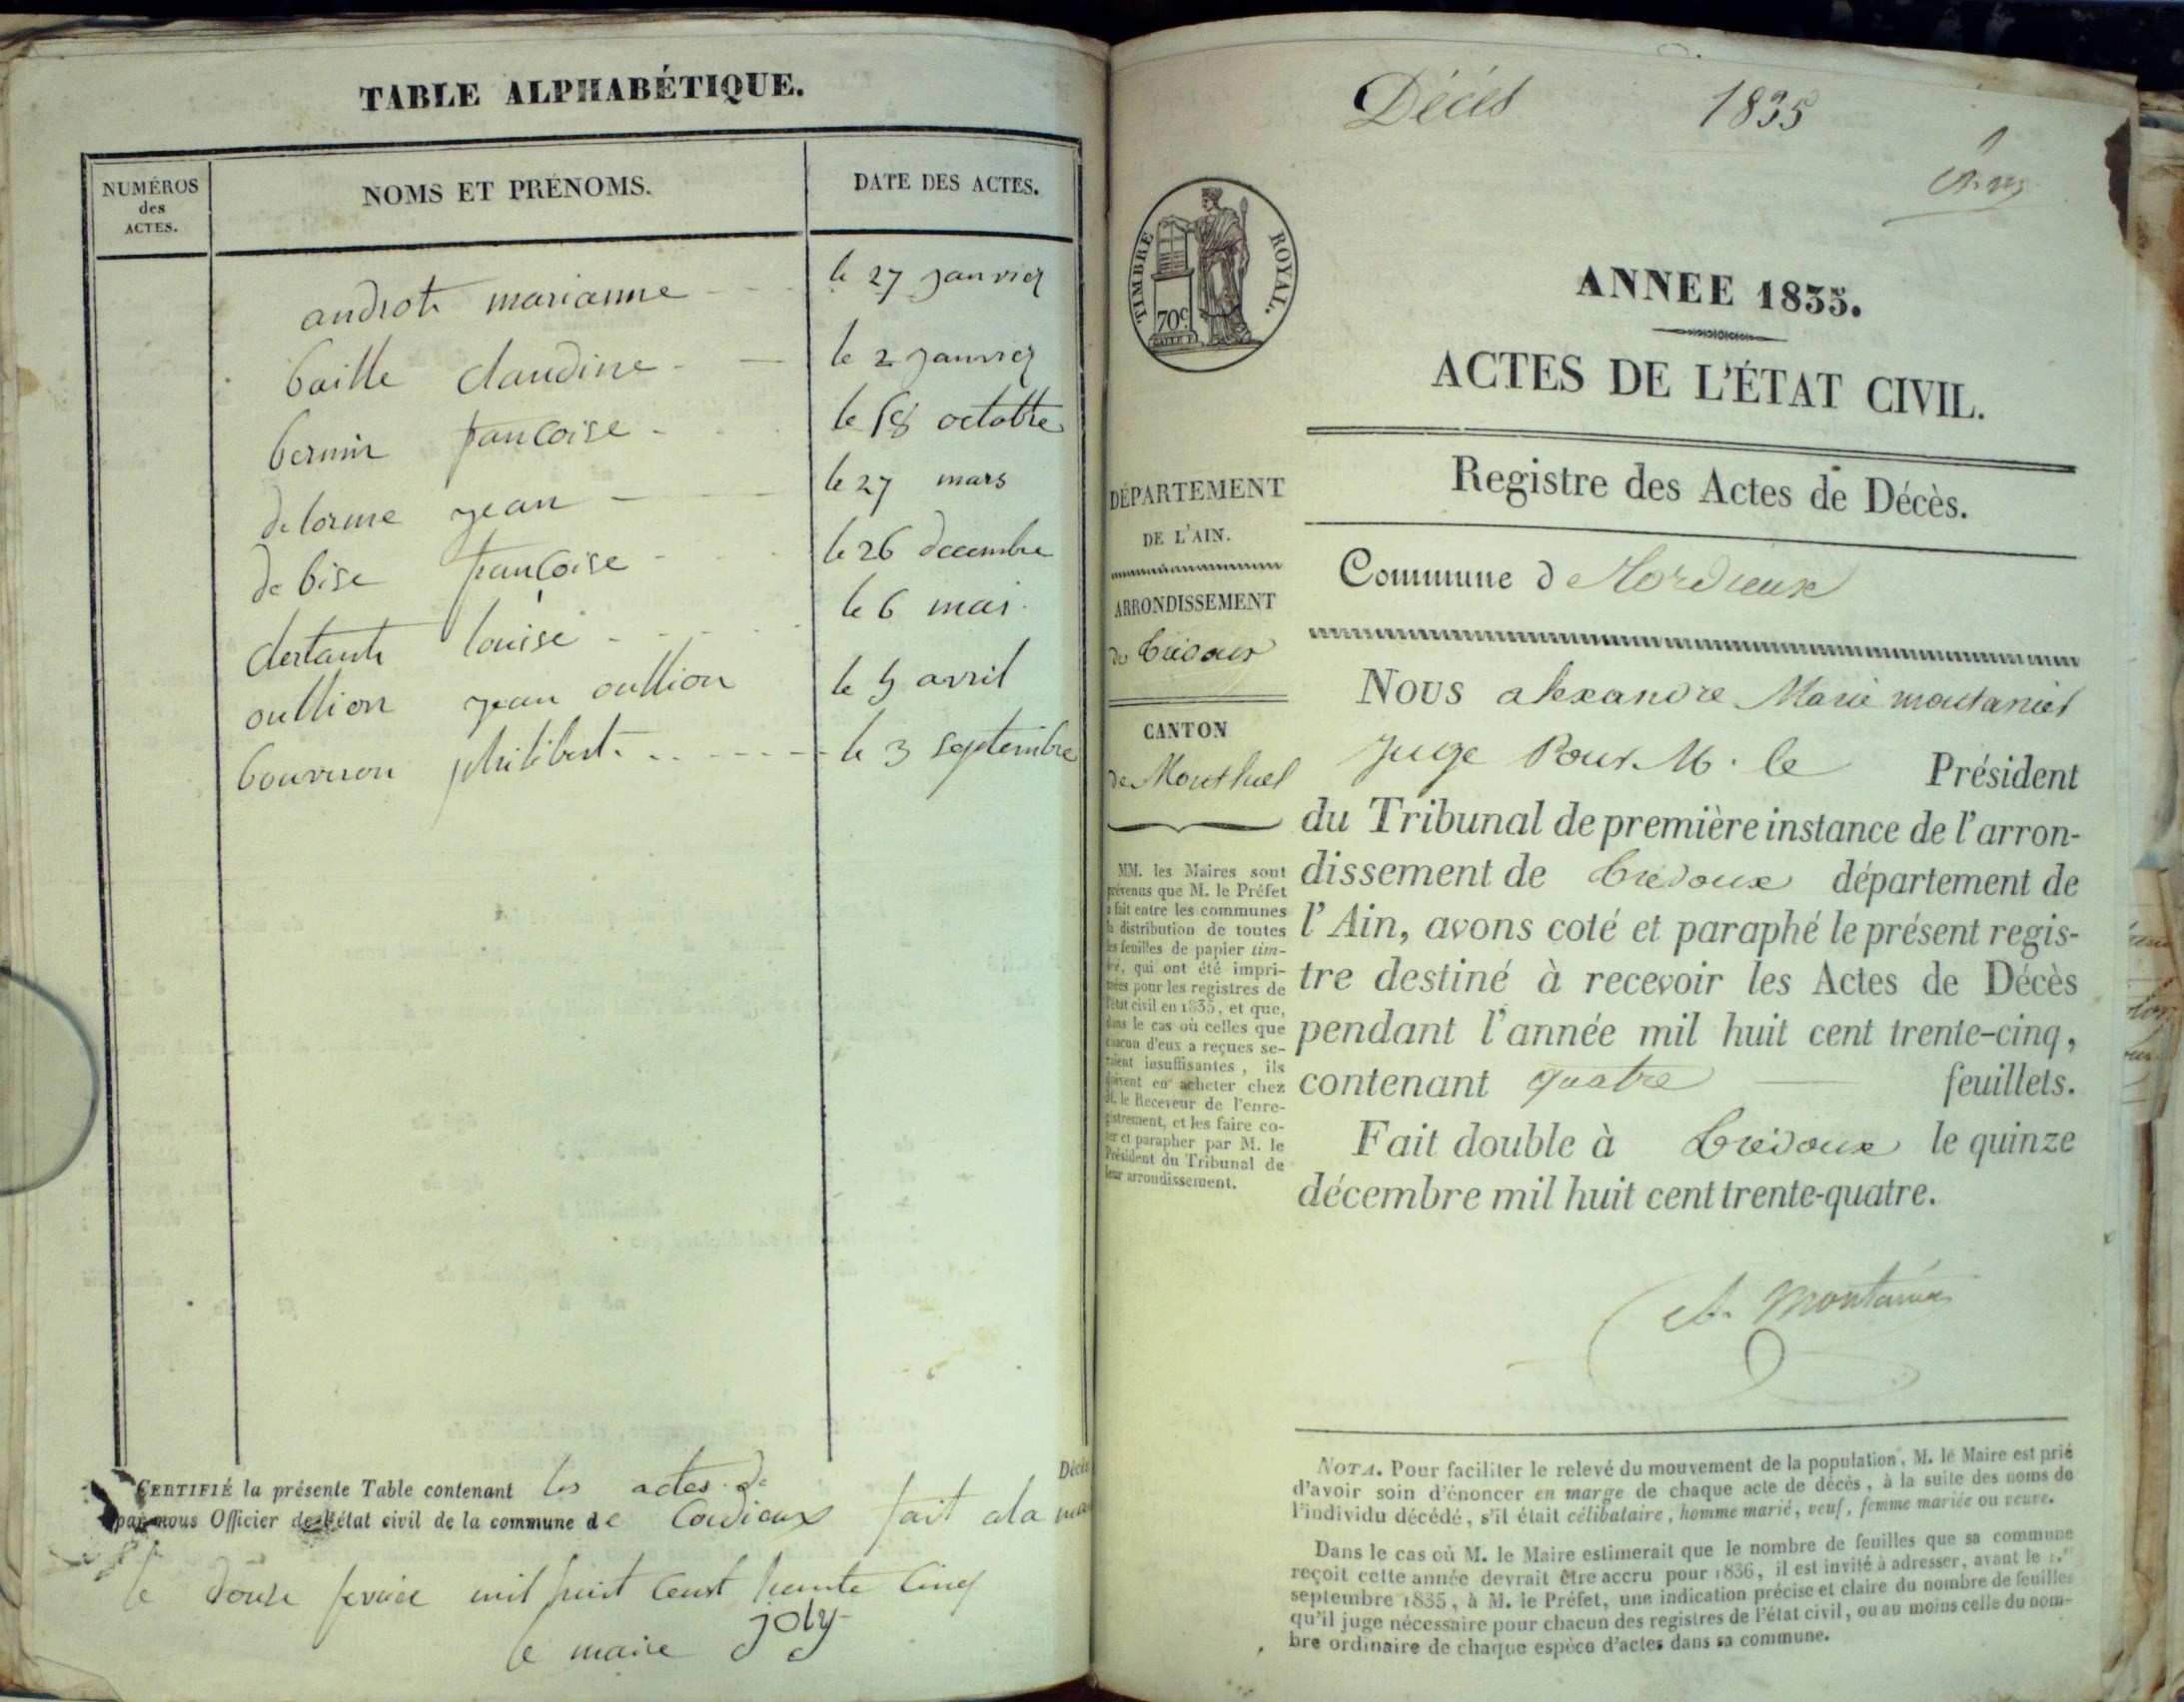 TABLE ALPHABÉTIQUE.
NUMÉROS
des
ACTES.
NOMS ET PRÉNOMS.
DATE DES ACTES.
androt marianne le 27 janvier
baille claudine le 2 janvier
bernin françoise le 18 octobre
delorme jean le 27 mars
de bise françoise le 26 decembre
louise le 6 mai
oullion jean oullion le 5 avril
bouvron philibert le 3 septembre
Décès
CERTIFIÉ la présente Table contenant les actes de
par nous Officier de l'état civil de la commune de Cordieux fait a la
le douze fevrier mil huit cent trente cinq
le maire joly
Décès 1835
TIMBRE ROYAL.
70c
ANNEE 1835.
ACTES DE L'ÉTAT CIVIL.
Registre des Actes de Décès.
DÉPARTEMENT
DE L'AIN.
ARRONDISSEMENT
de Trévoux
CANTON
de Montluel
MM. les Maires sont
prévenus que M. le Préfet
a fait entre les communes
la distribution de toutes
les feuilles de papier tim-
bré, qui ont été impri-
mées pour les registres de
l'état civil en 1835, et que,
dans le cas où celles que
chacun d'eux a reçues se-
raient insuffisantes, ils
doivent en acheter chez
M. le Receveur de l'enre-
gistrement, et les faire co-
ter et parapher par M. le
Président du Tribunal de
leur arrondissement.
Commune de Cordieux
NOUS alexandre Marie montaniet
juge Pour M. le Président
du Tribunal de première instance de l'arron-
dissement de trévoux département de
l'Ain, avons coté et paraphé le présent regis-
tre destiné à recevoir les Actes de Décès
pendant l'année mil huit cent trente-cinq,
contenant quatre feuillets.
Fait double à trévoux le quinze
décembre mil huit cent trente-quatre.
NOTA. Pour faciliter le relevé du mouvement de la population, M. le Maire est prié
d'avoir soin d'énoncer en marge de chaque acte de décès, à la suite des noms de
l'individu décédé, s'il était célibataire, homme marié, veuf, femme mariée ou veuve.
Dans le cas où M. le Maire estimerait que le nombre de feuilles que sa commune
reçoit cette année devrait être accru pour 1836, il est invité à adresser, avant le 1.er
septembre 1835, à M. le Préfet, une indication précise et claire du nombre de feuilles
qu'il juge nécessaire pour chacun des registres de l'état civil, ou au moins celle du nom-
bre ordinaire de chaque espèce d'actes dans sa commune.